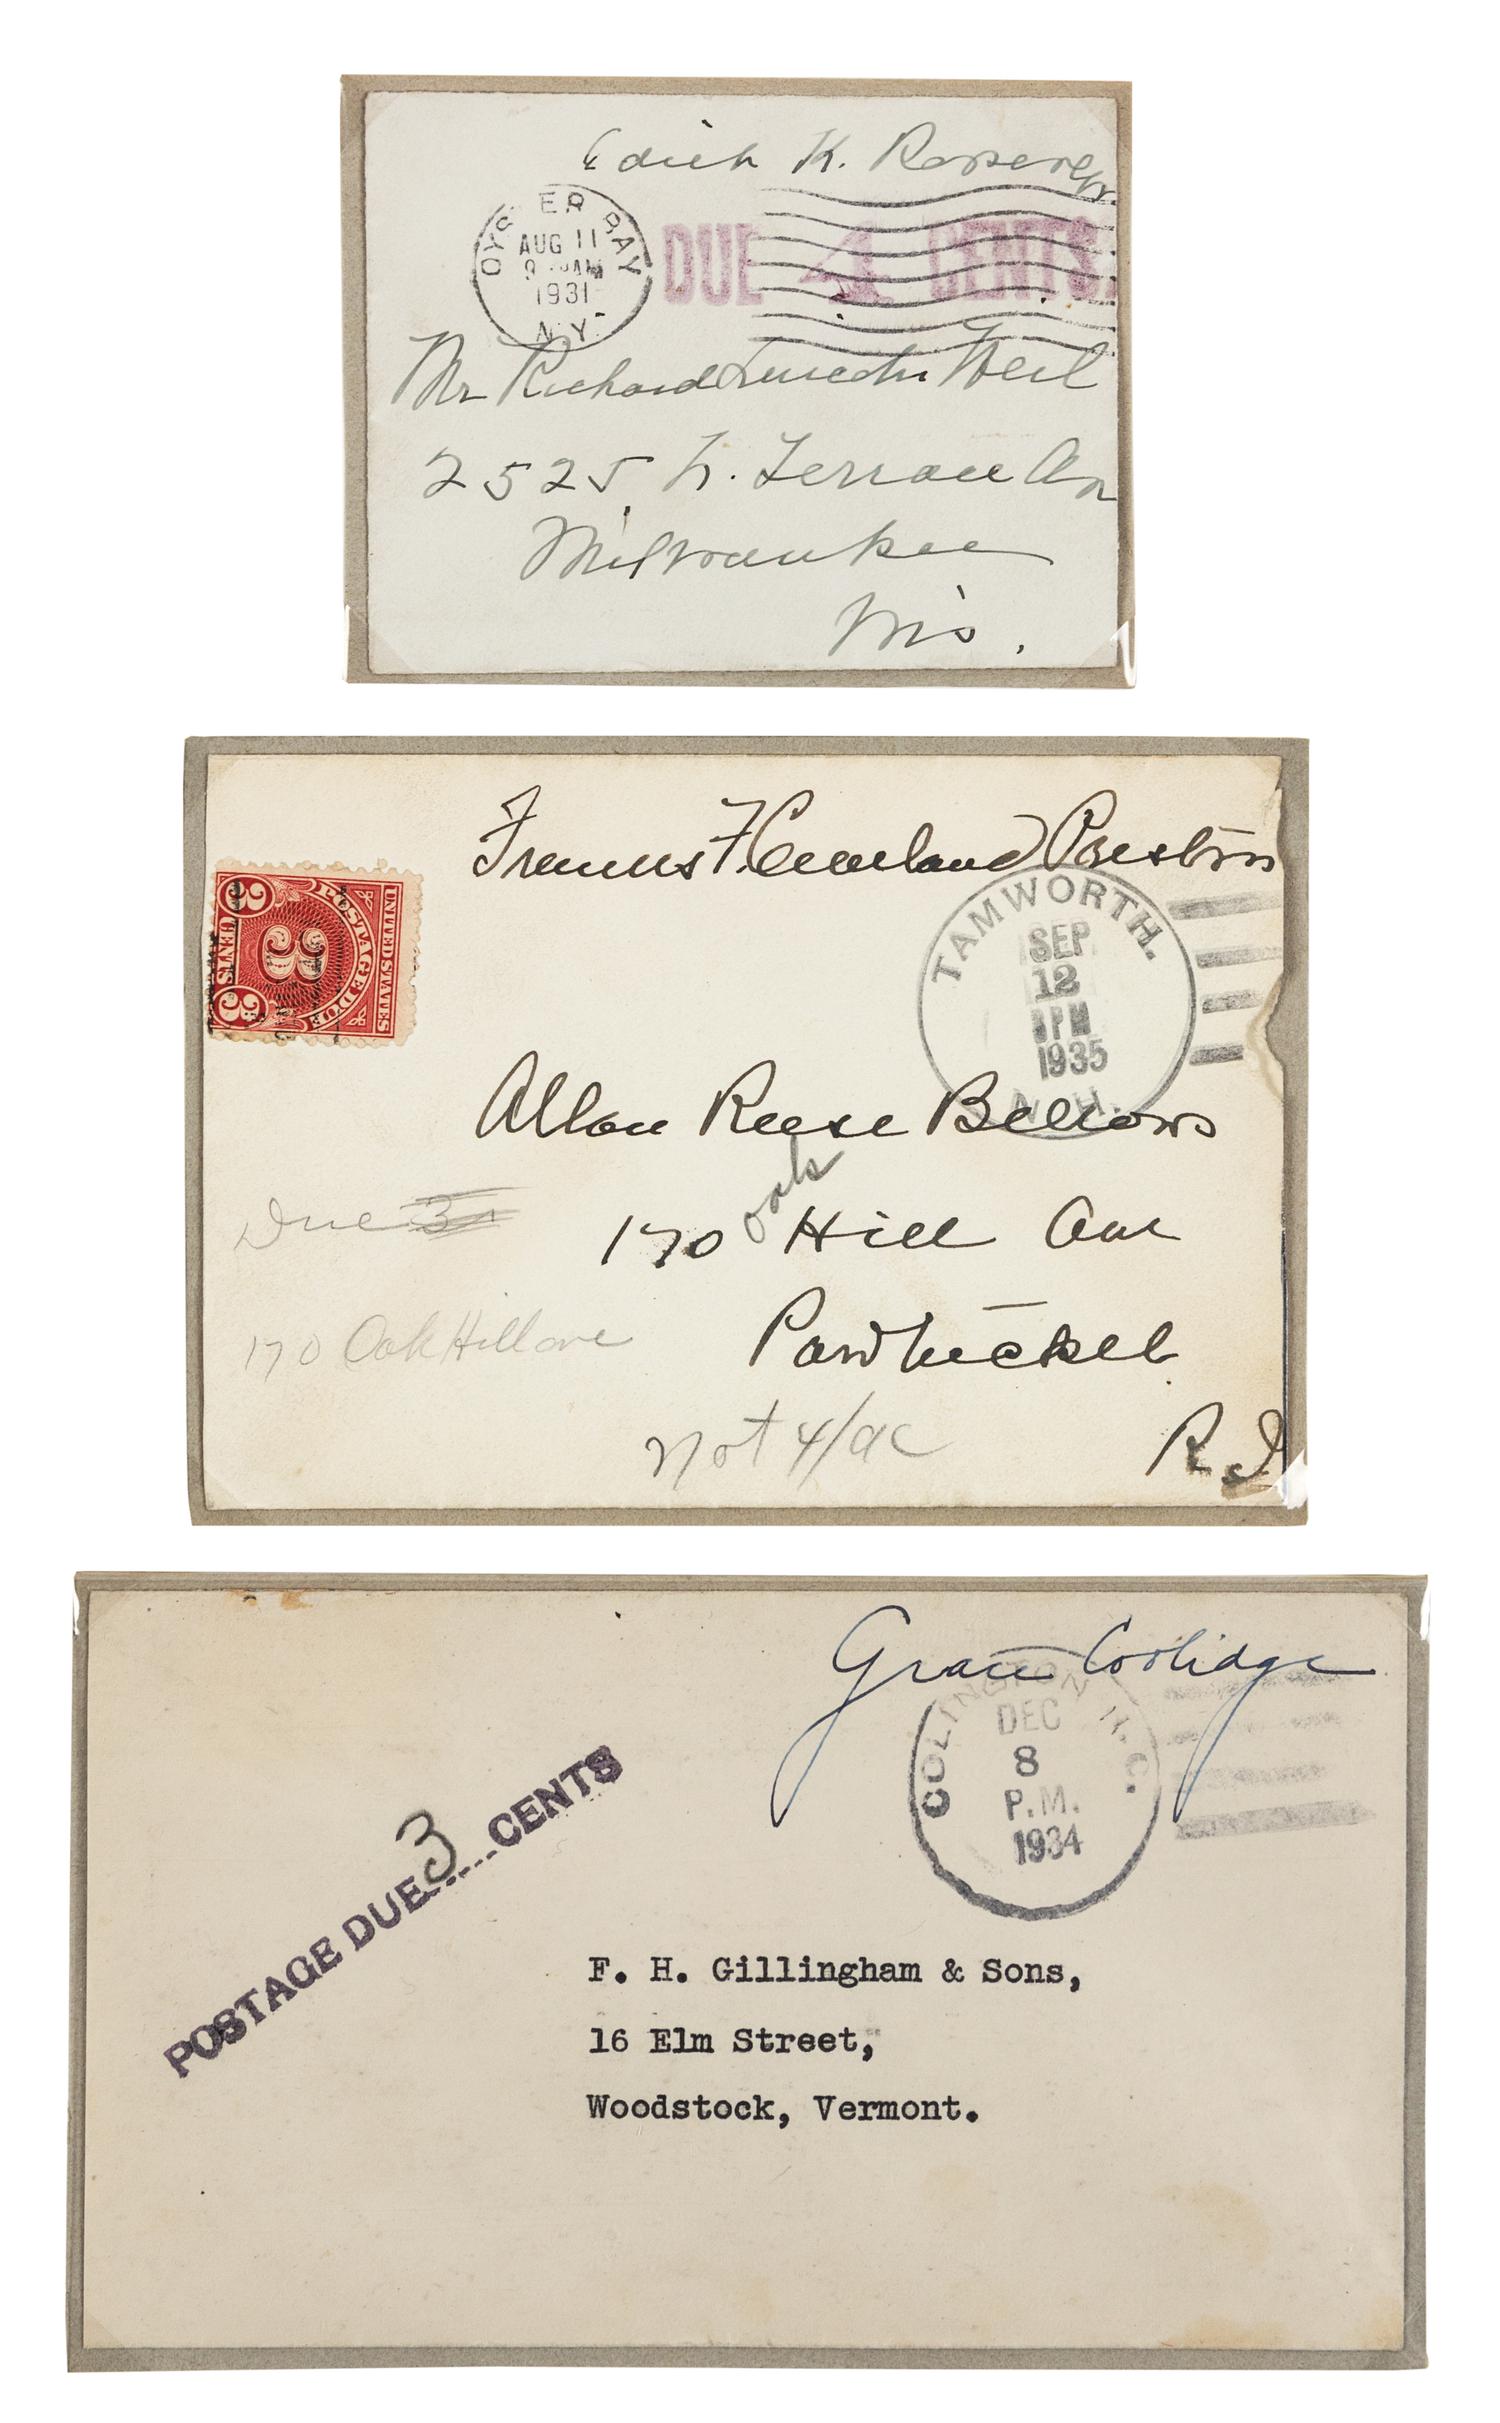 Edith K. Roosevelt
OYSTER BAY
AUG 11
9 AM
1931
N.Y.
DUE 4 CENTS.
Mr Richard Lincoln Weil
2525 N. Terrace Av
Milwaukee
Wis.
Frances F. Cleveland Preston
UNITED STATES
POSTAGE DUE
3
3 CENTS 3
TAMWORTH.
SEP
12
1PM
1935
N.H.
Allan Reese Bellows
Due 3
oak
170 Hill Ave
170 Oak Hill ave
Pawtucket
Not 4/ac
R.I
Grace Coolidge
COLINGTON N.C.
DEC
8
P.M.
1934
POSTAGE DUE 3 CENTS
F. H. Gillingham & Sons,
16 Elm Street,
Woodstock, Vermont.